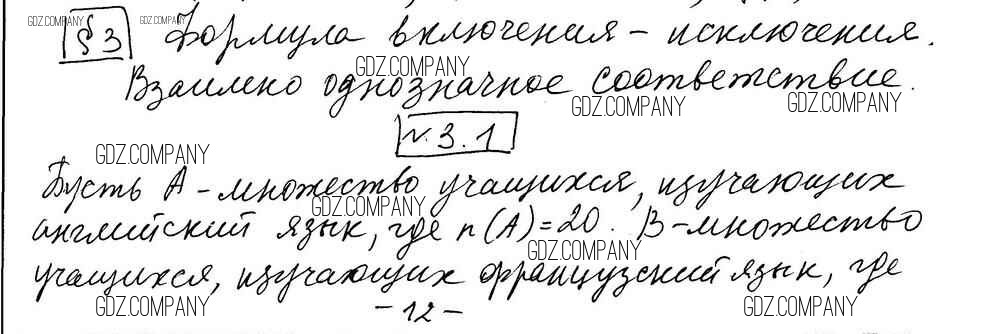 § 3 Формула включения - исключения.
Взаимно однозначное соответствие.
№ 3.1
Пусть A - множество учащихся, изучающих
английский язык, где n(A)=20. B - множество
учащихся, изучающих французский язык, где
- 12 -
GDZ.COMPANY
GDZ.COMPANY
GDZ.COMPANY
GDZ.COMPANY
GDZ.COMPANY
GDZ.COMPANY
GDZ.COMPANY
GDZ.COMPANY
GDZ.COMPANY
GDZ.COMPANY